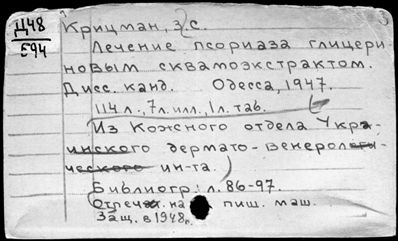 Д48
Е94
Крицман, З. С.
Лечение псориаза глицери-
новым сквамоэкстрактом.
Дисс. канд. Одесса, 1947.
114 л., 7 л. илл., 1 л. таб.
Из Кожного отдела Укра-
инского дермато-венероло
ин-та.)
Библиогр: л. 86-97.
Отпечат. на пиш. маш.
Защ. в 1948 г.